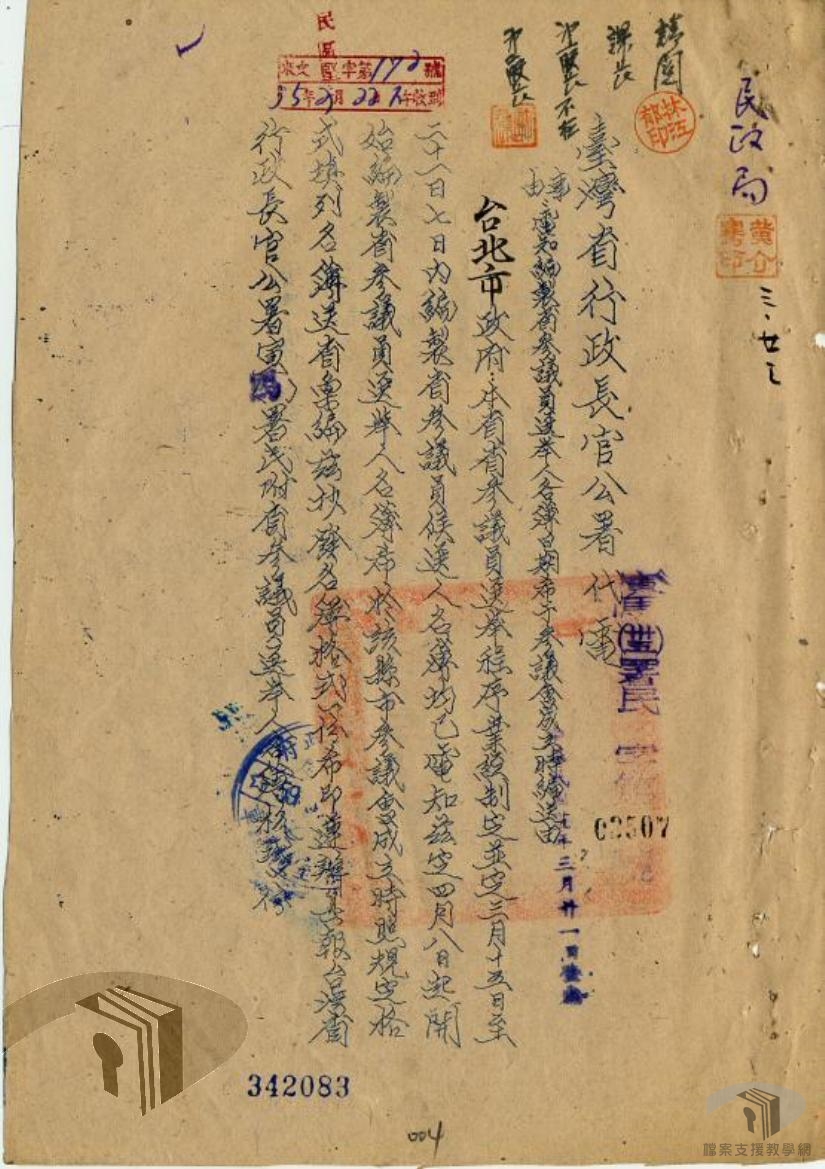 民政局
黃介騫印
三、廿三
核閱
林江郁印
課長
沈股長不在
臺灣省行政長官公署代電
署民 字第
02507
三月廿一日
事由：電知編製省參議員選舉人名簿日期希于參議會成立時編送由
台北市政府：本省省參議員選舉程序業經制定並定三月十五日至
二十一日七日內編製省參議員候選人名簿均已電知茲定四月八日起開
始編製省參議員選舉人名簿希於該縣市參議會成立時照規定格
式填列名簿送省彙編茲抄發名簿格式一份希即遵辦具報台灣省
行政長官公署寅 署民附省參議員選舉人名簿格式一份
民區
來文 字第172號
35年3月22日 收到
342083
004
檔案支援教學網